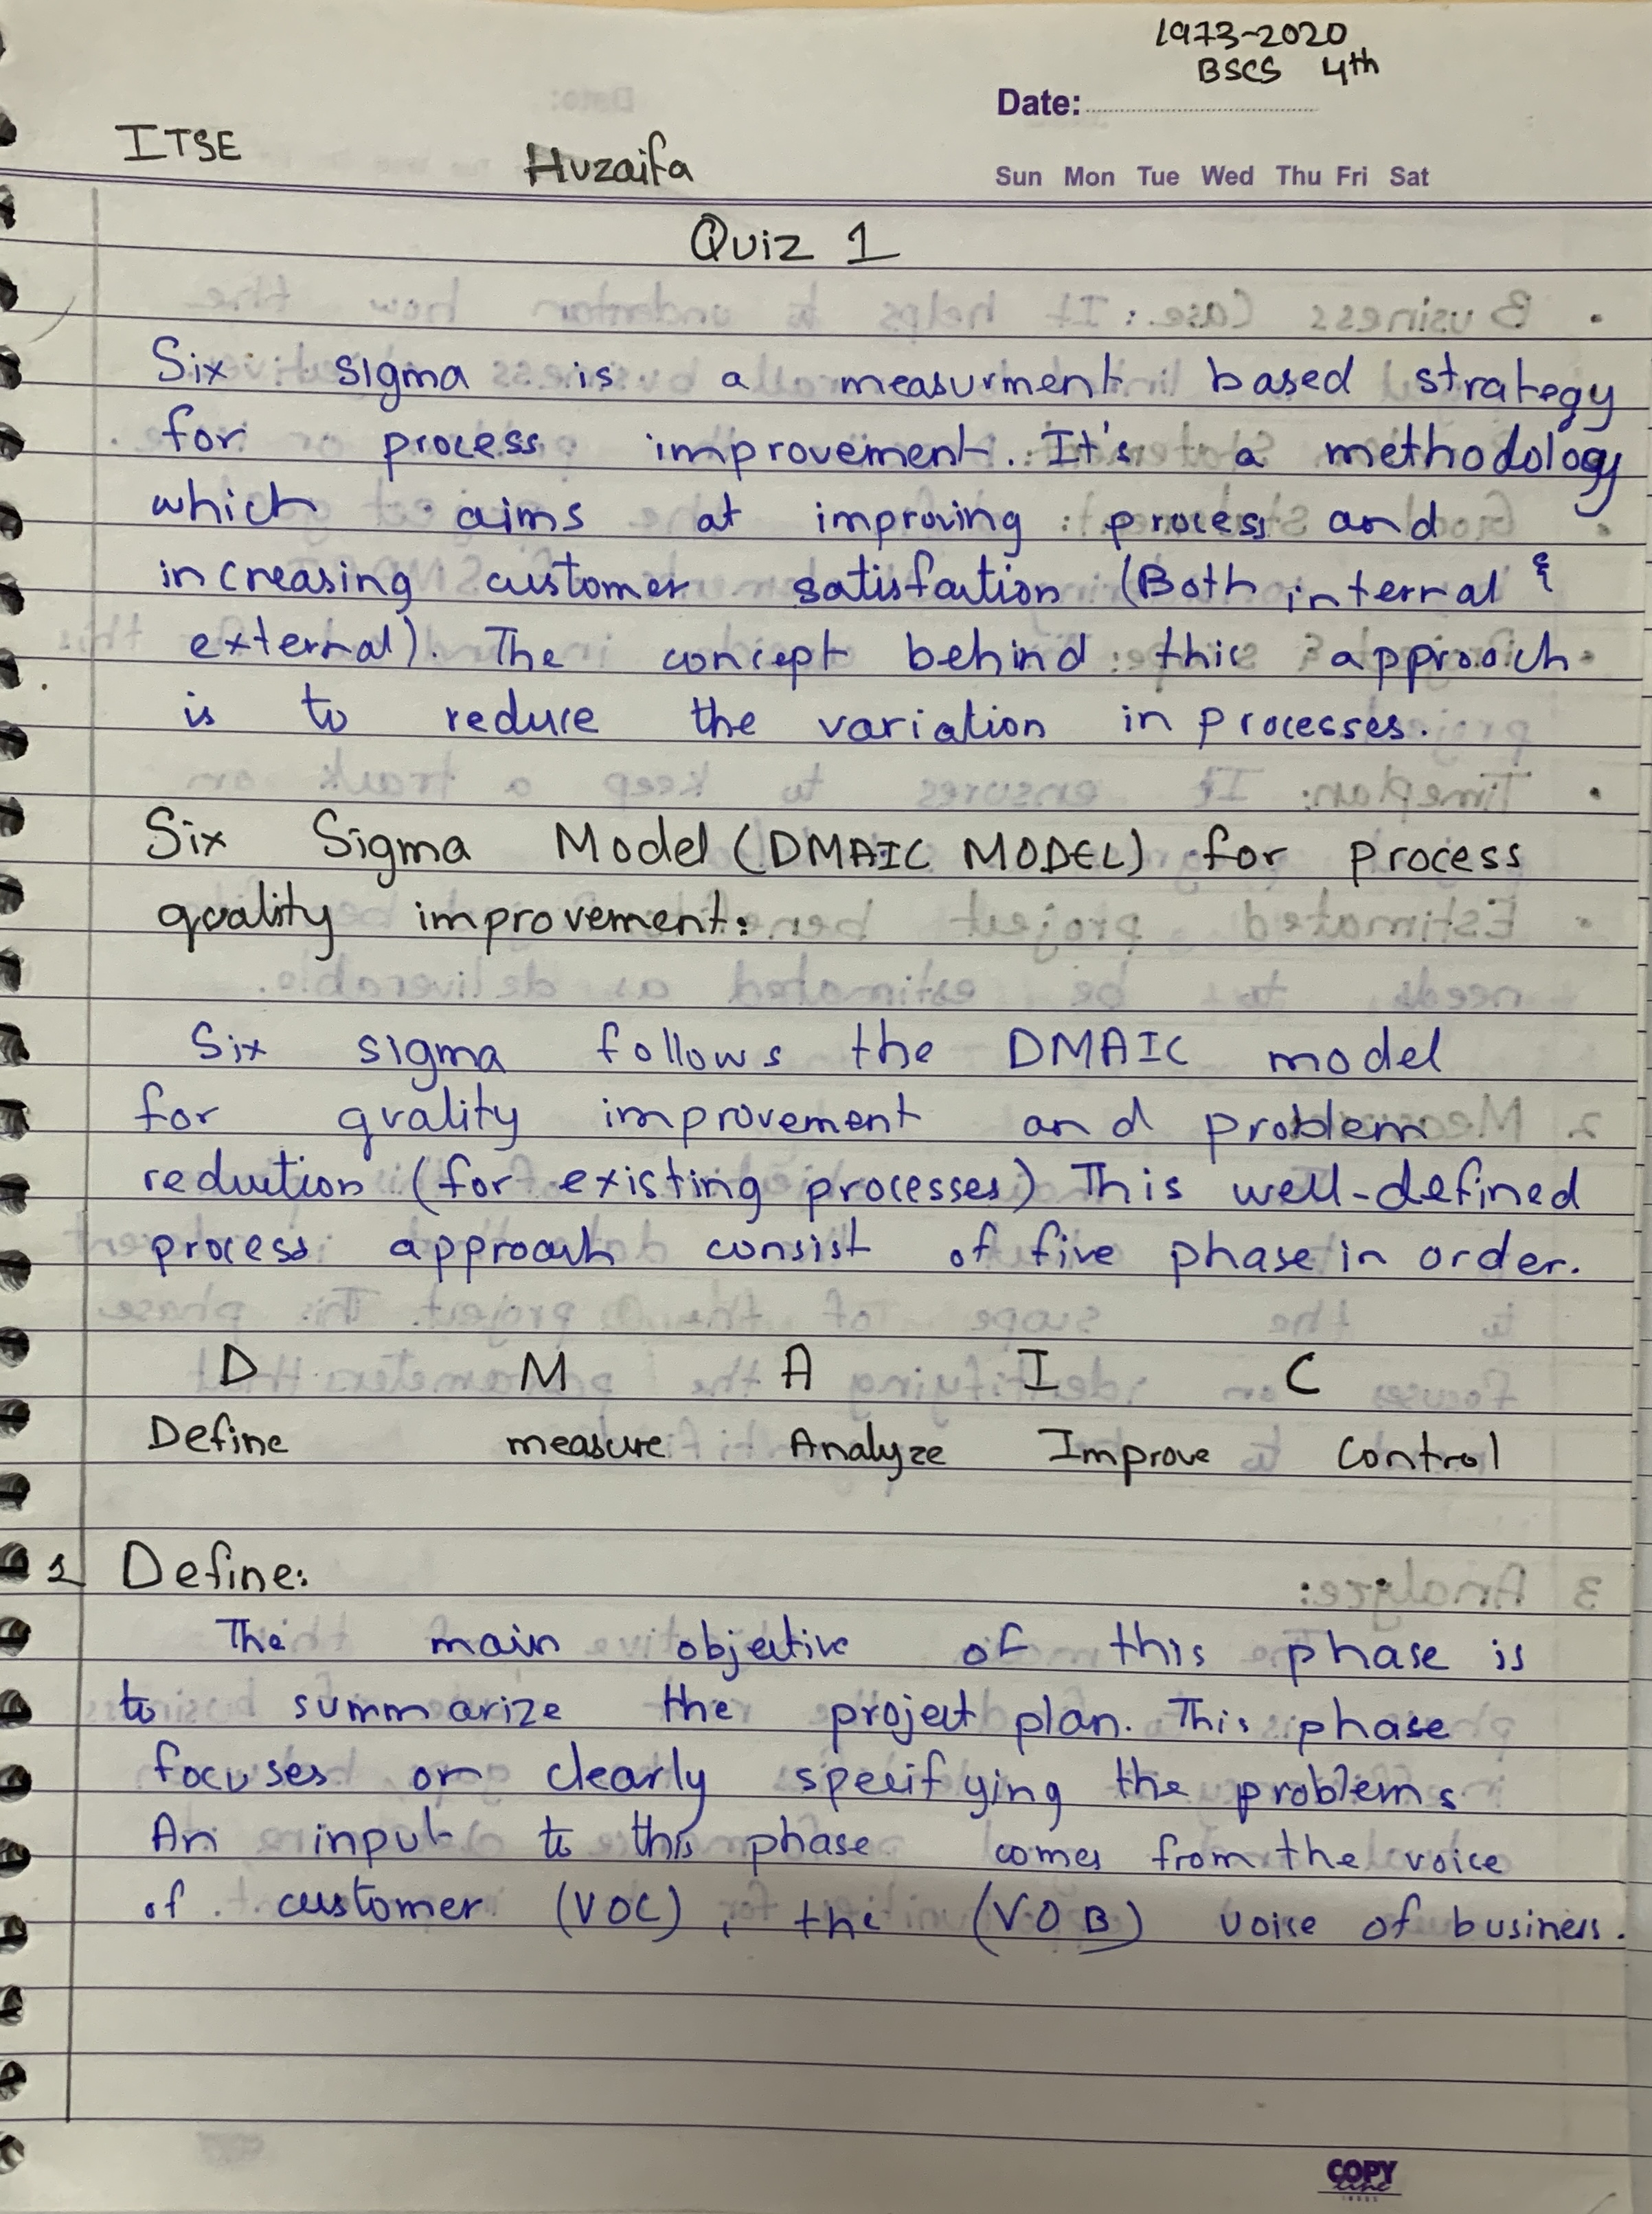 1973-2020
BSCS 4th
Date:
ITSE
Huzaifa
Sun Mon Tue Wed Thu Fri Sat
Quiz 1
Six sigma is a measurment based strategy
for process improvement. It's a methodology
which aims at improving process and
increasing customer satisfaction (Both internal &
external). The concept behind this approach
is to reduce the variation in processes.
Six Sigma Model (DMAIC MODEL) for process
quality improvement:
Six sigma follows the DMAIC model
for quality improvement and problem
reduction (for existing processes) This well-defined
process approach consist of five phase in order.
D M A I C
Define measure Analyze Improve Control
1 Define:
The main objective of this phase is
to summarize the project plan. This phase
focuses on clearly specifying the problems
An input to this phase comes from the voice
of customer (VOC), the (V.O.B) voice of business.
COPY